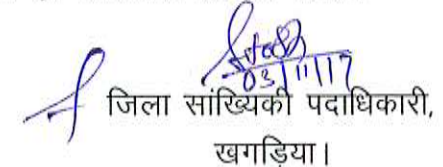 03/11/17
जिला सांख्यिकी पदाधिकारी,
खगड़िया।